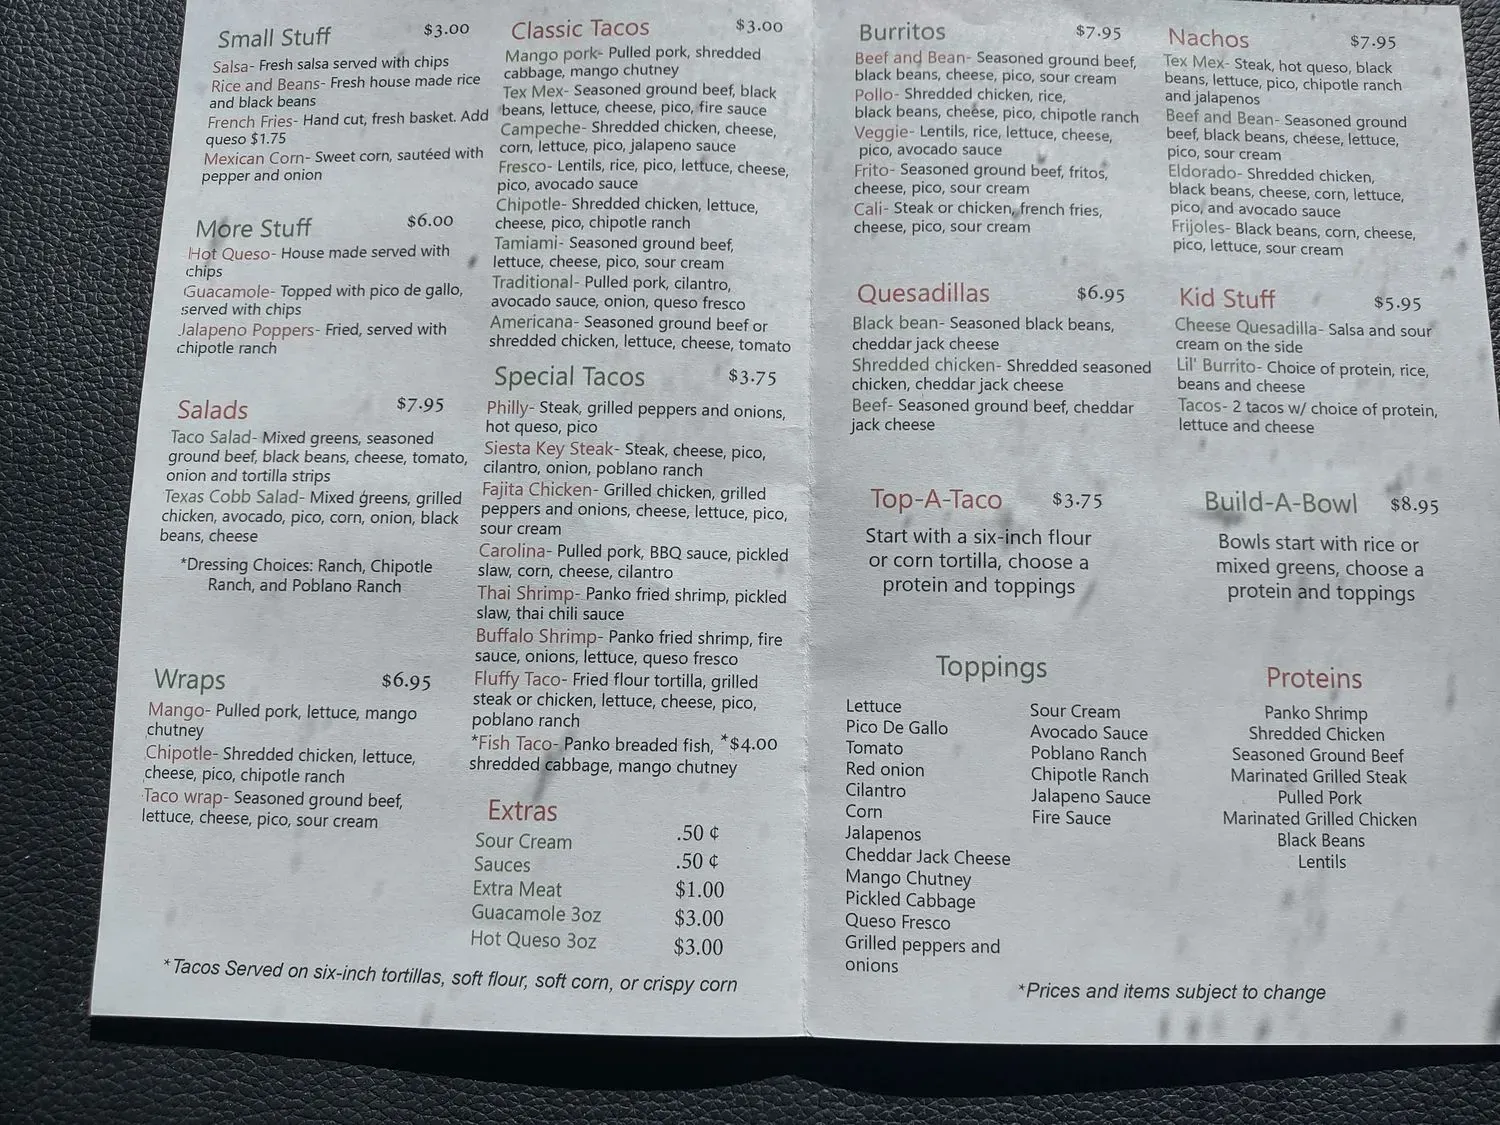 Small Stuff $3.00
Salsa- Fresh salsa served with chips
Rice and Beans- Fresh house made rice
and black beans
French Fries- Hand cut, fresh basket. Add
queso $1.75
Mexican Corn- Sweet corn, sautéed with
pepper and onion
More Stuff $6.00
Hot Queso- House made served with
chips
Guacamole- Topped with pico de gallo,
served with chips
Jalapeno Poppers- Fried, served with
chipotle ranch
Salads $7.95
Taco Salad- Mixed greens, seasoned
ground beef, black beans, cheese, tomato,
onion and tortilla strips
Texas Cobb Salad- Mixed greens, grilled
chicken, avocado, pico, corn, onion, black
beans, cheese
*Dressing Choices: Ranch, Chipotle
Ranch, and Poblano Ranch
Wraps $6.95
Mango- Pulled pork, lettuce, mango
chutney
Chipotle- Shredded chicken, lettuce,
cheese, pico, chipotle ranch
Taco wrap- Seasoned ground beef,
lettuce, cheese, pico, sour cream
Classic Tacos $3.00
Mango pork- Pulled pork, shredded
cabbage, mango chutney
Tex Mex- Seasoned ground beef, black
beans, lettuce, cheese, pico, fire sauce
Campeche- Shredded chicken, cheese,
corn, lettuce, pico, jalapeno sauce
Fresco- Lentils, rice, pico, lettuce, cheese,
pico, avocado sauce
Chipotle- Shredded chicken, lettuce,
cheese, pico, chipotle ranch
Tamiami- Seasoned ground beef,
lettuce, cheese, pico, sour cream
Traditional- Pulled pork, cilantro,
avocado sauce, onion, queso fresco
Americana- Seasoned ground beef or
shredded chicken, lettuce, cheese, tomato
Special Tacos $3.75
Philly- Steak, grilled peppers and onions,
hot queso, pico
Siesta Key Steak- Steak, cheese, pico,
cilantro, onion, poblano ranch
Fajita Chicken- Grilled chicken, grilled
peppers and onions, cheese, lettuce, pico,
sour cream
Carolina- Pulled pork, BBQ sauce, pickled
slaw, corn, cheese, cilantro
Thai Shrimp- Panko fried shrimp, pickled
slaw, thai chili sauce
Buffalo Shrimp- Panko fried shrimp, fire
sauce, onions, lettuce, queso fresco
Fluffy Taco- Fried flour tortilla, grilled
steak or chicken, lettuce, cheese, pico,
poblano ranch
*Fish Taco- Panko breaded fish, *$4.00
shredded cabbage, mango chutney
Extras
Sour Cream .50 ¢
Sauces .50 ¢
Extra Meat $1.00
Guacamole 3oz $3.00
Hot Queso 3oz $3.00
*Tacos Served on six-inch tortillas, soft flour, soft corn, or crispy corn
Burritos $7.95
Beef and Bean- Seasoned ground beef,
black beans, cheese, pico, sour cream
Pollo- Shredded chicken, rice,
black beans, cheese, pico, chipotle ranch
Veggie- Lentils, rice, lettuce, cheese,
pico, avocado sauce
Frito- Seasoned ground beef, fritos,
cheese, pico, sour cream
Cali- Steak or chicken, french fries,
cheese, pico, sour cream
Quesadillas $6.95
Black bean- Seasoned black beans,
cheddar jack cheese
Shredded chicken- Shredded seasoned
chicken, cheddar jack cheese
Beef- Seasoned ground beef, cheddar
jack cheese
Top-A-Taco $3.75
Start with a six-inch flour
or corn tortilla, choose a
protein and toppings
Nachos $7.95
Tex Mex- Steak, hot queso, black
beans, lettuce, pico, chipotle ranch
and jalapenos
Beef and Bean- Seasoned ground
beef, black beans, cheese, lettuce,
pico, sour cream
Eldorado- Shredded chicken,
black beans, cheese, corn, lettuce,
pico, and avocado sauce
Frijoles- Black beans, corn, cheese,
pico, lettuce, sour cream
Kid Stuff $5.95
Cheese Quesadilla- Salsa and sour
cream on the side
Lil' Burrito- Choice of protein, rice,
beans and cheese
Tacos- 2 tacos w/ choice of protein,
lettuce and cheese
Build-A-Bowl $8.95
Bowls start with rice or
mixed greens, choose a
protein and toppings
Toppings
Lettuce
Pico De Gallo
Tomato
Red onion
Cilantro
Corn
Jalapenos
Cheddar Jack Cheese
Mango Chutney
Pickled Cabbage
Queso Fresco
Grilled peppers and
onions
Sour Cream
Avocado Sauce
Poblano Ranch
Chipotle Ranch
Jalapeno Sauce
Fire Sauce
Proteins
Panko Shrimp
Shredded Chicken
Seasoned Ground Beef
Marinated Grilled Steak
Pulled Pork
Marinated Grilled Chicken
Black Beans
Lentils
*Prices and items subject to change